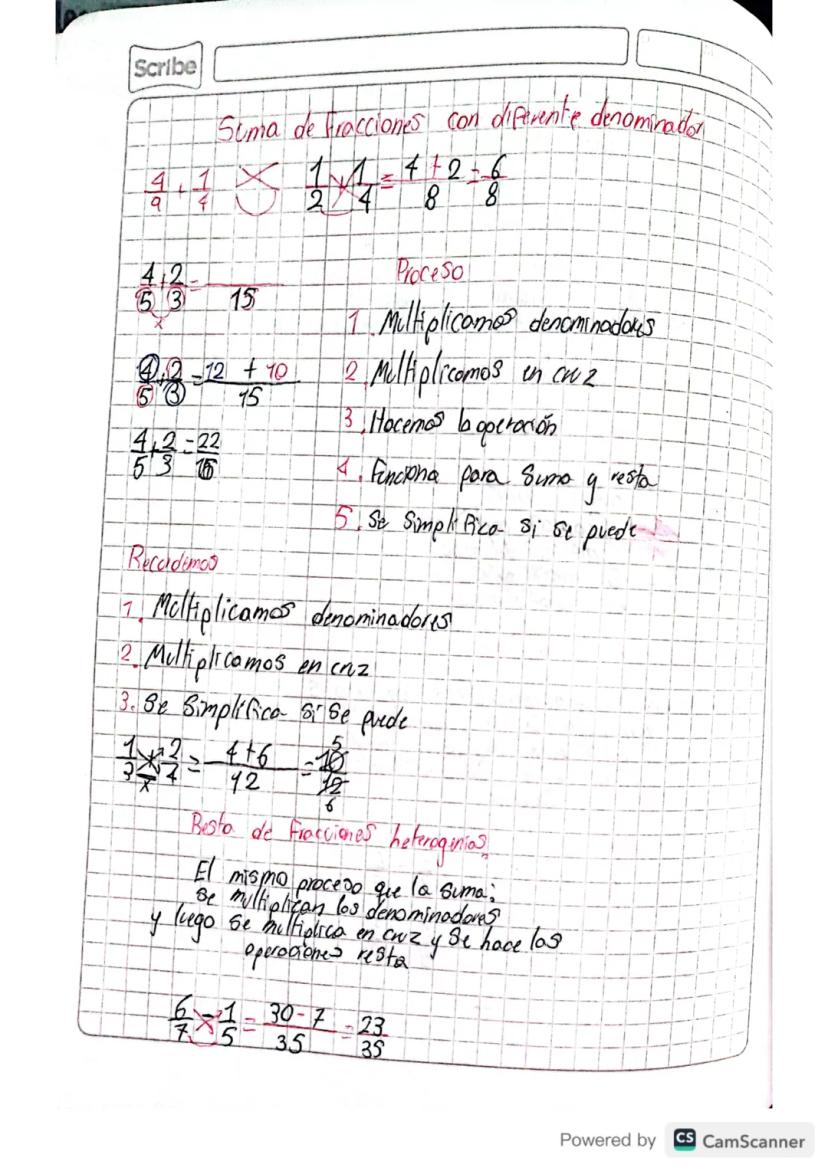 Scribe
Suma de fracciones con diferente denominador
4/9 + 1/4    1/2 × 1/4 = 4 + 2 / 8 = 6/8
4/5 + 2/3 = / 15
x
Proceso
1. Multiplicamos denominadores
4/5 + 2/3 = 12 + 10 / 15
2. Multiplicamos en cruz
3. Hacemos la operación
4/5 + 2/3 = 22/15
4. Funciona para suma y resta
5. Se simplifica si se puede
Recordemos
1. Multiplicamos denominadores
2. Multiplicamos en cruz
3. Se simplifica si se puede
1/3 × 2/4 = 4+6 / 12 = 10/12 5 6
x
Resta de fracciones heterogenias
El mismo proceso que la suma;
se multiplican los denominadores
y luego se multiplica en cruz y se hace las
operaciones resta
6/7 - 1/5 = 30 - 7 / 35 = 23/35
Powered by CS CamScanner